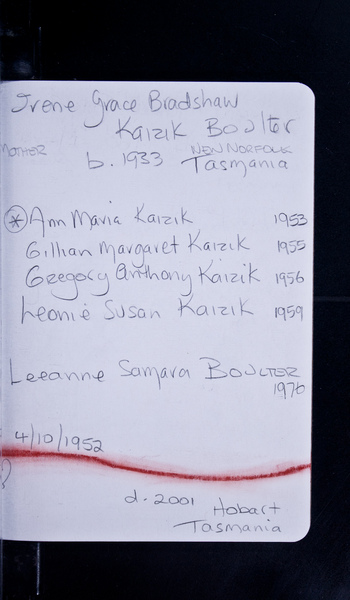 Irene Grace Bradshaw
Kaizik Boulter
MOTHER
NEW NORFOLK
b. 1933 Tasmania
* Ann Maria Kaizik 1953
Gillian Margaret Kaizik 1955
Gregory Anthony Kaizik 1956
Leonie Susan Kaizik 1959
Leeanne Samara BOULTER
1970
4/10/1952
d. 2001 Hobart
Tasmania